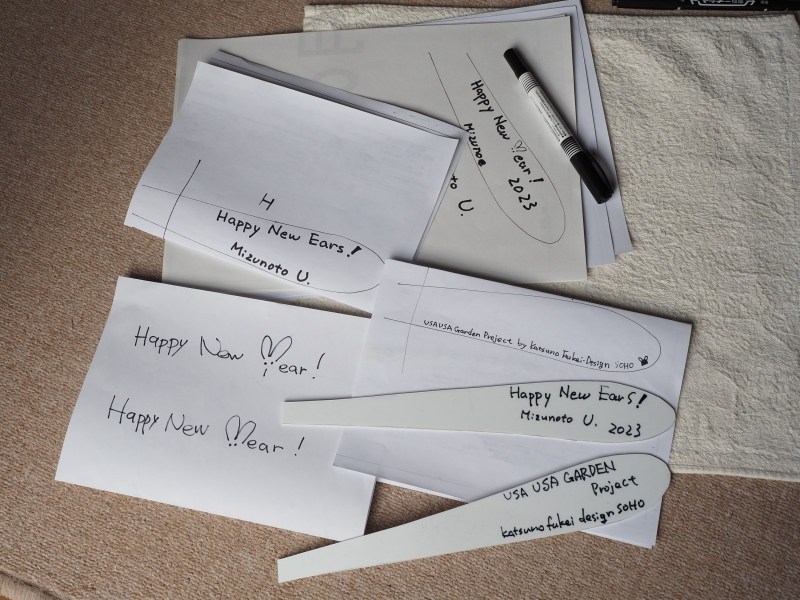 Happy New Year!
2023
Mizuno
to
U.
H
Happy New Ears!
Mizunoto U.
USAUSA Garden Project by Katsuno Fukei-Design SOHO
Happy New Year!
Happy New Year!
Happy New Ears!
Mizunoto U. 2023
USA USA GARDEN
Project
katsuno fukei design SOHO